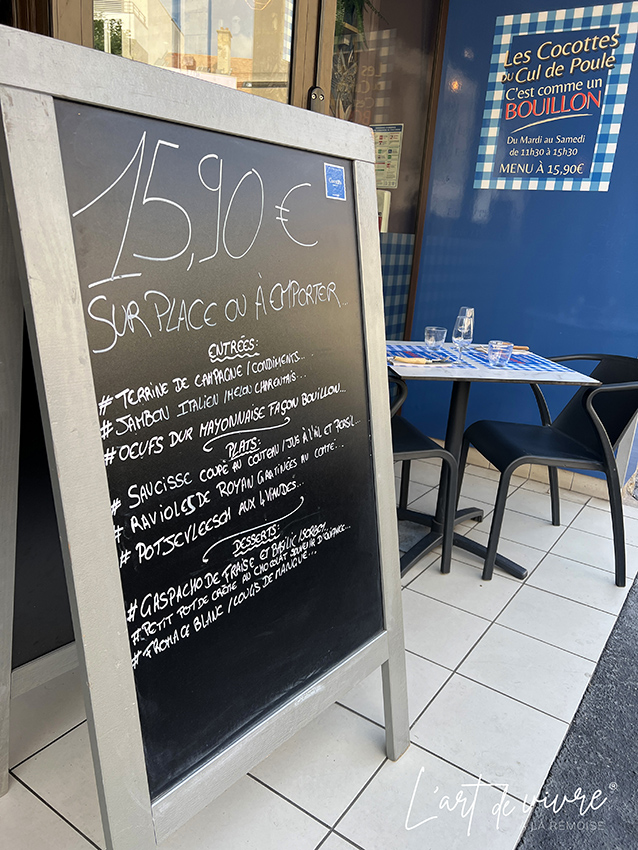 15,90 €
SUR PLACE OU À EMPORTER...
ENTRÉES:
# TERRINE DE CAMPAGNE / CONDIMENTS...
# JAMBON ITALIEN / MELON CHARENTAIS...
# OEUFS DUR MAYONNAISE FAÇON BOUILLON...
PLATS:
# SAUCISSE COUPÉ AU COUTEAU / JUS À L'AIL ET PERSIL...
# RAVIOLES DE ROYAN GRATINÉES AU COMTÉ...
# POTJEVLEESCH AUX 4 VIANDES...
DESSERTS:
# GASPACHO DE FRAISE ET BASILIC / SORBET
# PETIT POT DE CRÈME AU CHOCOLAT SOUVENIR D'ENFANCE...
# FROMAGE BLANC / COULIS DE MANGUE...
Les Cocottes
du Cul de Poule
C'est comme un
BOUILLON
Du Mardi au Samedi
de 11h30 à 15h30
MENU À 15,90€
L'art de vivre®
À LA RÉMOISE